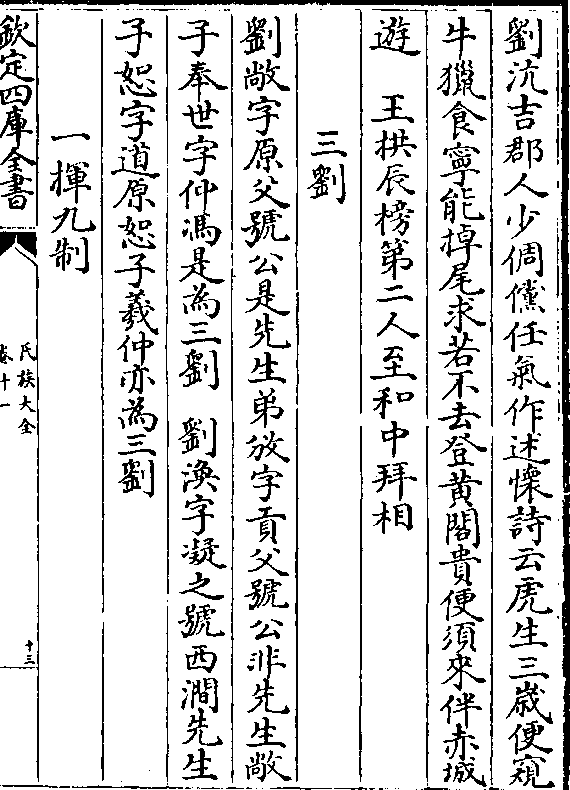 劉沆吉郡人少倜儻任氣作述懐詩云虎生三歲便窺
牛獵食寧能掉尾求若不去登黃閣貴便須來伴赤城
遊　王拱辰榜第二人至和中拜相
三劉
劉敞字原父號公是先生弟攽字貢父號公非先生敞
子奉世字仲馮是為三劉　劉渙字凝之號西澗先生
子恕字道原恕子羲仲亦為三劉
一揮九制
欽定四庫全書
氏族大全
卷十一
十三